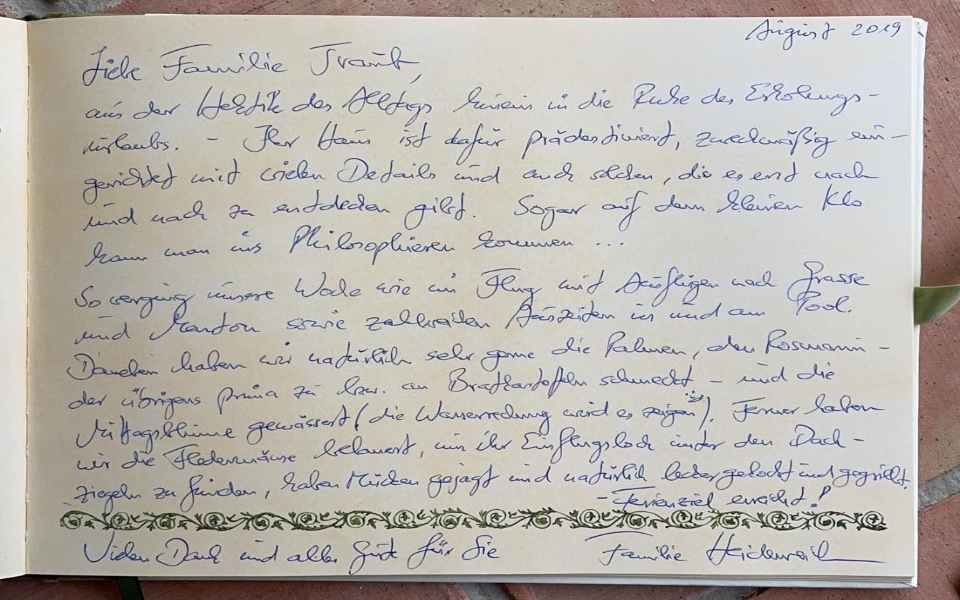 August 2019
Liebe Familie Traub,
aus der Hektik des Alltags hinein in die Ruhe des Erholungs-
urlaubs. - Ihr Haus ist dafür prädestiniert, zweckmäßig ein-
gerichtet mit vielen Details und auch solchen, die es erst nach
und nach zu entdecken gibt. Sogar auf dem kleinen Klo
kann man ins Philosophieren kommen ...
So verging unsere Woche wie im Flug mit Ausflügen nach Grasse
und Menton sowie zahlreichen Auszeiten in und am Pool.
Daneben haben wir natürlich sehr gerne die Palmen, den Rosmarin -
der übrigens prima zu bzw. an Bratkartoffeln schmeckt - und die
Mittagsblume gewässert (die Wasserrechnung wird es zeigen). Ferner haben
wir die Fledermäuse belauert, um ihr Einflugsloch unter den Dach-
ziegeln zu finden, haben Mücken gejagt und natürlich lecker gekocht und gegrillt.
- Ferienziel erreicht!
Vielen Dank und alles Gute für Sie
Familie